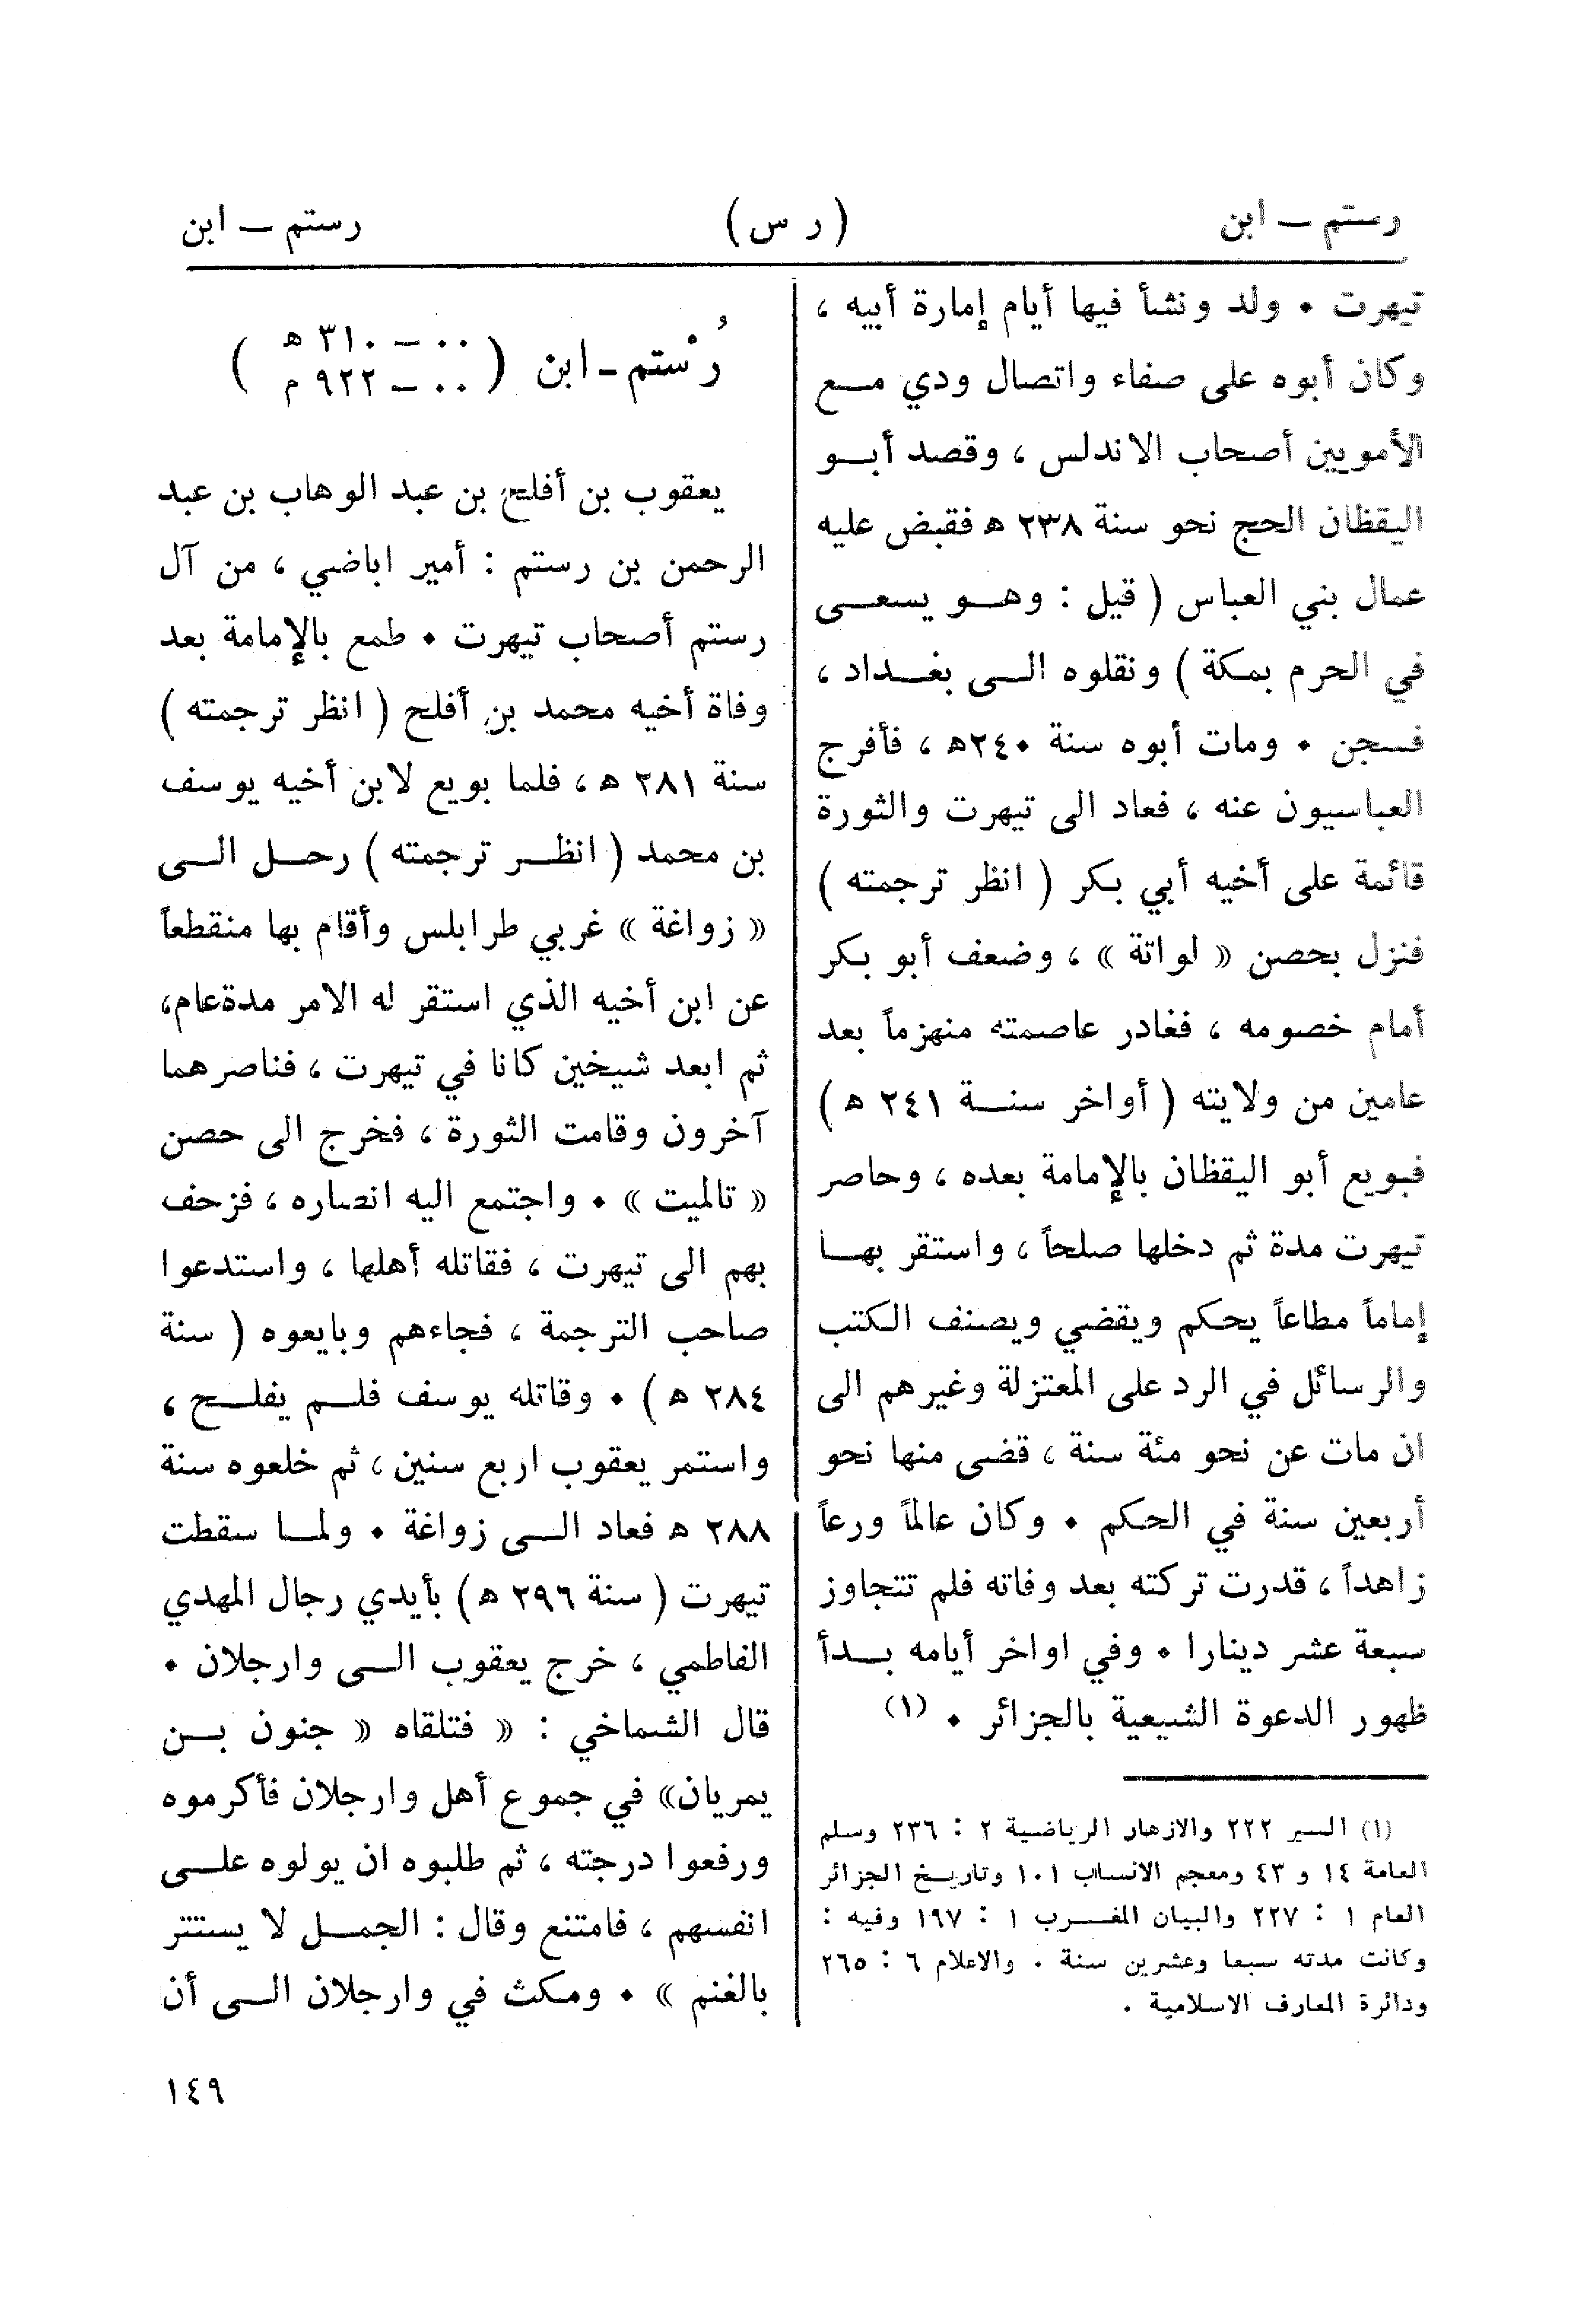 رستم ـ ابن (ر س) رستم ـ ابن
تيهرت . ولد ونشأ فيها أيام إمارة أبيه ،
وكان أبوه على صفاء واتصال ودي مع
الأمويين أصحاب الاندلس ، وقصد أبو
اليقظان الحج نحو سنة ٢٣٨ ه فقبض عليه
عمال بني العباس ( قيل : وهو يسعى
في الحرم بمكة ) ونقلوه الى بغداد ،
فسجن . ومات أبوه سنة ٢٤٠ه ، فأفرج
العباسيون عنه ، فعاد الى تيهرت والثورة
قائمة على أخيه أبي بكر ( انظر ترجمته )
فنزل بحصن « لواتة » ، وضعف أبو بكر
أمام خصومه ، فغادر عاصمته منهزماً بعد
عامين من ولايته ( أواخر سنة ٢٤١ ه )
فبويع أبو اليقظان بالإمامة بعده ، وحاصر
تيهرت مدة ثم دخلها صلحاً ، واستقر بها
إماماً مطاعاً يحكم ويقضي ويصنف الكتب
والرسائل في الرد على المعتزلة وغيرهم الى
ان مات عن نحو مئة سنة ، قضى منها نحو
أربعين سنة في الحكم . وكان عالماً ورعاً
زاهداً ، قدرت تركته بعد وفاته فلم تتجاوز
سبعة عشر دينارا . وفي اواخر أيامه بدأ
ظهور الدعوة الشيعية بالجزائر . (١)
(١) السير ٢٢٢ والازهار الرياضية ٢ : ٢٣٦ وسلم
العامة ١٤ و ٤٣ ومعجم الانساب ١٠١ وتاريخ الجزائر
العام ١ : ٢٢٧ والبيان المغرب ١ : ١٩٧ وفيه :
وكانت مدته سبعا وعشرين سنة . والاعلام ٦ : ٢٦٥
ودائرة المعارف الاسلامية .
رُسْتم ـ ابن ( ٠٠ ـ ٣١٠ ه
٠٠ ـ ٩٢٢ م )
يعقوب بن أفلح بن عبد الوهاب بن عبد
الرحمن بن رستم : أمير اباضي ، من آل
رستم أصحاب تيهرت . طمع بالإمامة بعد
وفاة أخيه محمد بن أفلح ( انظر ترجمته )
سنة ٢٨١ ه ، فلما بويع لابن أخيه يوسف
بن محمد ( انظر ترجمته ) رحل الى
« زواغة » غربي طرابلس وأقام بها منقطعاً
عن ابن أخيه الذي استقر له الامر مدةعام،
ثم ابعد شيخين كانا في تيهرت ، فناصرهما
آخرون وقامت الثورة ، فخرج الى حصن
« تالميت » . واجتمع اليه انصاره ، فزحف
بهم الى تيهرت ، فقاتله أهلها ، واستدعوا
صاحب الترجمة ، فجاءهم وبايعوه ( سنة
٢٨٤ ه ) . وقاتله يوسف فلم يفلح ،
واستمر يعقوب اربع سنين ، ثم خلعوه سنة
٢٨٨ ه فعاد الى زواغة . ولما سقطت
تيهرت ( سنة ٢٩٦ ه ) بأيدي رجال المهدي
الفاطمي ، خرج يعقوب الى وارجلان .
قال الشماخي : « فتلقاه « جنون بن
يمريان» في جموع أهل وارجلان فأكرموه
ورفعوا درجته ، ثم طلبوه ان يولوه على
انفسهم ، فامتنع وقال : الجمل لا يستتر
بالغنم » . ومكث في وارجلان الى أن
١٤٩